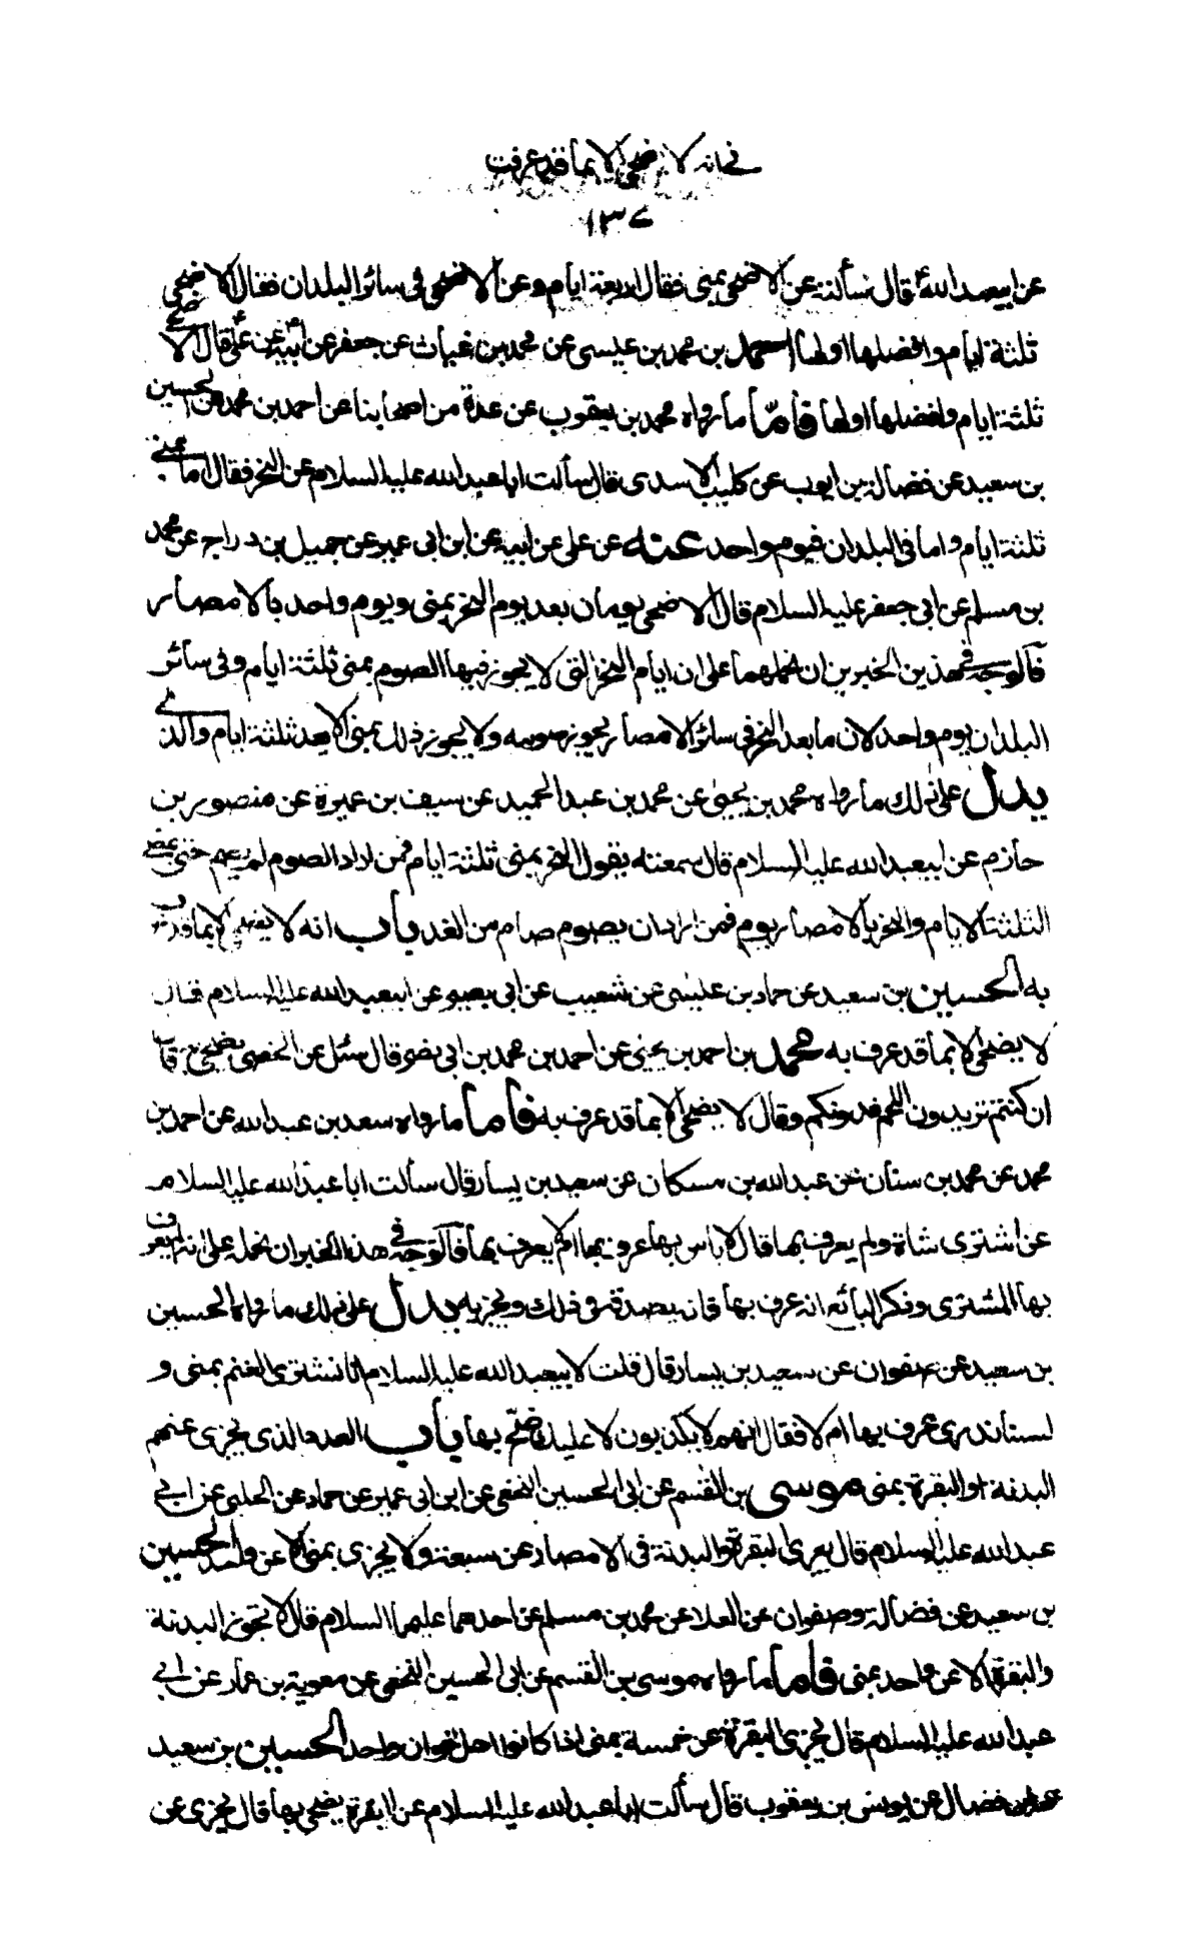 في انه لا يضحى الا بما قد عرفت
١٣٧
عن ابيعبد الله ع قال سألته عن الاضحى بمنى فقال اربعة ايام وعن الاضحى في سائر البلدان فقال الاضحى
ثلثة ايام وافضلها اولها احمد بن محمد بن عيسى عن محمد بن غياث عن جعفر عن ابيه عن على قال الاضحى
ثلثة ايام وافضلها اولها فأمّا ما رواه محمد بن يعقوب عن عدة من اصحابنا عن احمد بن محمد عن الحسين
بن سعيد عن فضالة بن ايوب عن كليب الاسدى قال سألت ابا عبد الله عليه السلام عن النحر فقال اما بمنى
ثلثة ايام واما في البلدان فيوم واحد عنه عن على عن ابيه عن ابن ابى عمير عن جميل بن دراج عن محمد
بن مسلم عن ابى جعفر عليه السلام قال الاضحى يومان بعد يوم النحر بمنى ويوم واحد بالامصار
فالوجه في هذين الخبرين ان نحملهما على ان ايام النحر التى لا يجوز فيها الصوم بمنى ثلثة ايام وفى سائر
البلدان يوم واحد لان ما بعد النحر في سائر الامصار يجوز صومه ولا يجوز ذلك بمنى الا بعد ثلثة ايام والذى
يدل على ذلك ما رواه محمد بن يحيى عن محمد بن عبد الحميد عن سيف بن عميرة عن منصور بن
حازم عن ابيعبد الله عليه السلام قال سمعته يقول النحر بمنى ثلثة ايام فمن اراد الصوم لم يصم حتى تمضى
الثلثة الايام والنحر بالامصار يوم فمن اراد ان يصوم صام من الغد باب انه لا يضحى الا بما قد عرف
به الحسين بن سعيد عن حماد بن عيسى عن شعيب عن ابى بصير عن ابيعبد الله عليه السلام قال
لا يضحى الا بما قد عرف به محمد بن احمد بن يحيى عن احمد بن محمد بن ابى نصر قال سئل عن الخصى يضحى به قال
ان كنتم تريدون اللحم فدونكم وقال لا يضحى الا بما قد عرف به فأما ما رواه سعد بن عبد الله عن احمد بن
محمد عن محمد بن سنان عن عبد الله بن مسكان عن سعيد بن يسار قال سألت ابا عبد الله عليه السلام
عن اشترى شاة ولم يعرف بها قال لا باس بها عرف بها ام لا يعرف بها فالوجه في هذا الخبر ان نحمله على انه لم يعرف
بها المشترى وذكر البائع انه عرف بها فانه يصدقه في ذلك ويجزيه يدل على ذلك ما رواه الحسين
بن سعيد عن صفوان عن سعيد بن يسار قال قلت لابيعبد الله عليه السلام انا نشترى الغنم بمنى و
لسنا ندرى عرف بها ام لا فقال انهم لا يكذبون لا عليك ضحّ بها باب العدد الذى يجزى عنهم
البدنة او البقرة بمنى موسى بن القسم عن ابى الحسين النخعى عن ابن ابى عمير عن حماد عن الحلبى عن ابى
عبد الله عليه السلام قال يجزى البقرة والبدنة فى الامصار عن سبعة ولا يجزى بمنى الا عن واحد الحسين
بن سعيد عن فضالة وصفوان عن العلا عن محمد بن مسلم عن احدهما عليهما السلام قال لا تجوز البدنة
والبقرة الا عن واحد بمنى فأما ما رواه موسى بن القسم عن ابى الحسين النخعى عن معوية بن عمار عن ابى
عبد الله عليه السلام قال يجزى البقرة عن خمسة بمنى اذا كانوا اهل خوان واحد الحسين بن سعيد
فضال عن يونس بن يعقوب قال سألت ابا عبد الله عليه السلام عن البقرة يضحى بها قال يجزى عن